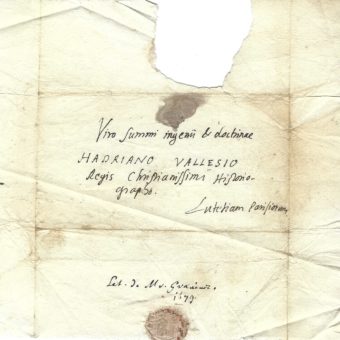 Viro summi ingenii & doctrinae
HADRIANO VALLESIO
Regis Christianissimi Historio-
grapho.
Lutetiam Parisiorum
Let. de Mr.